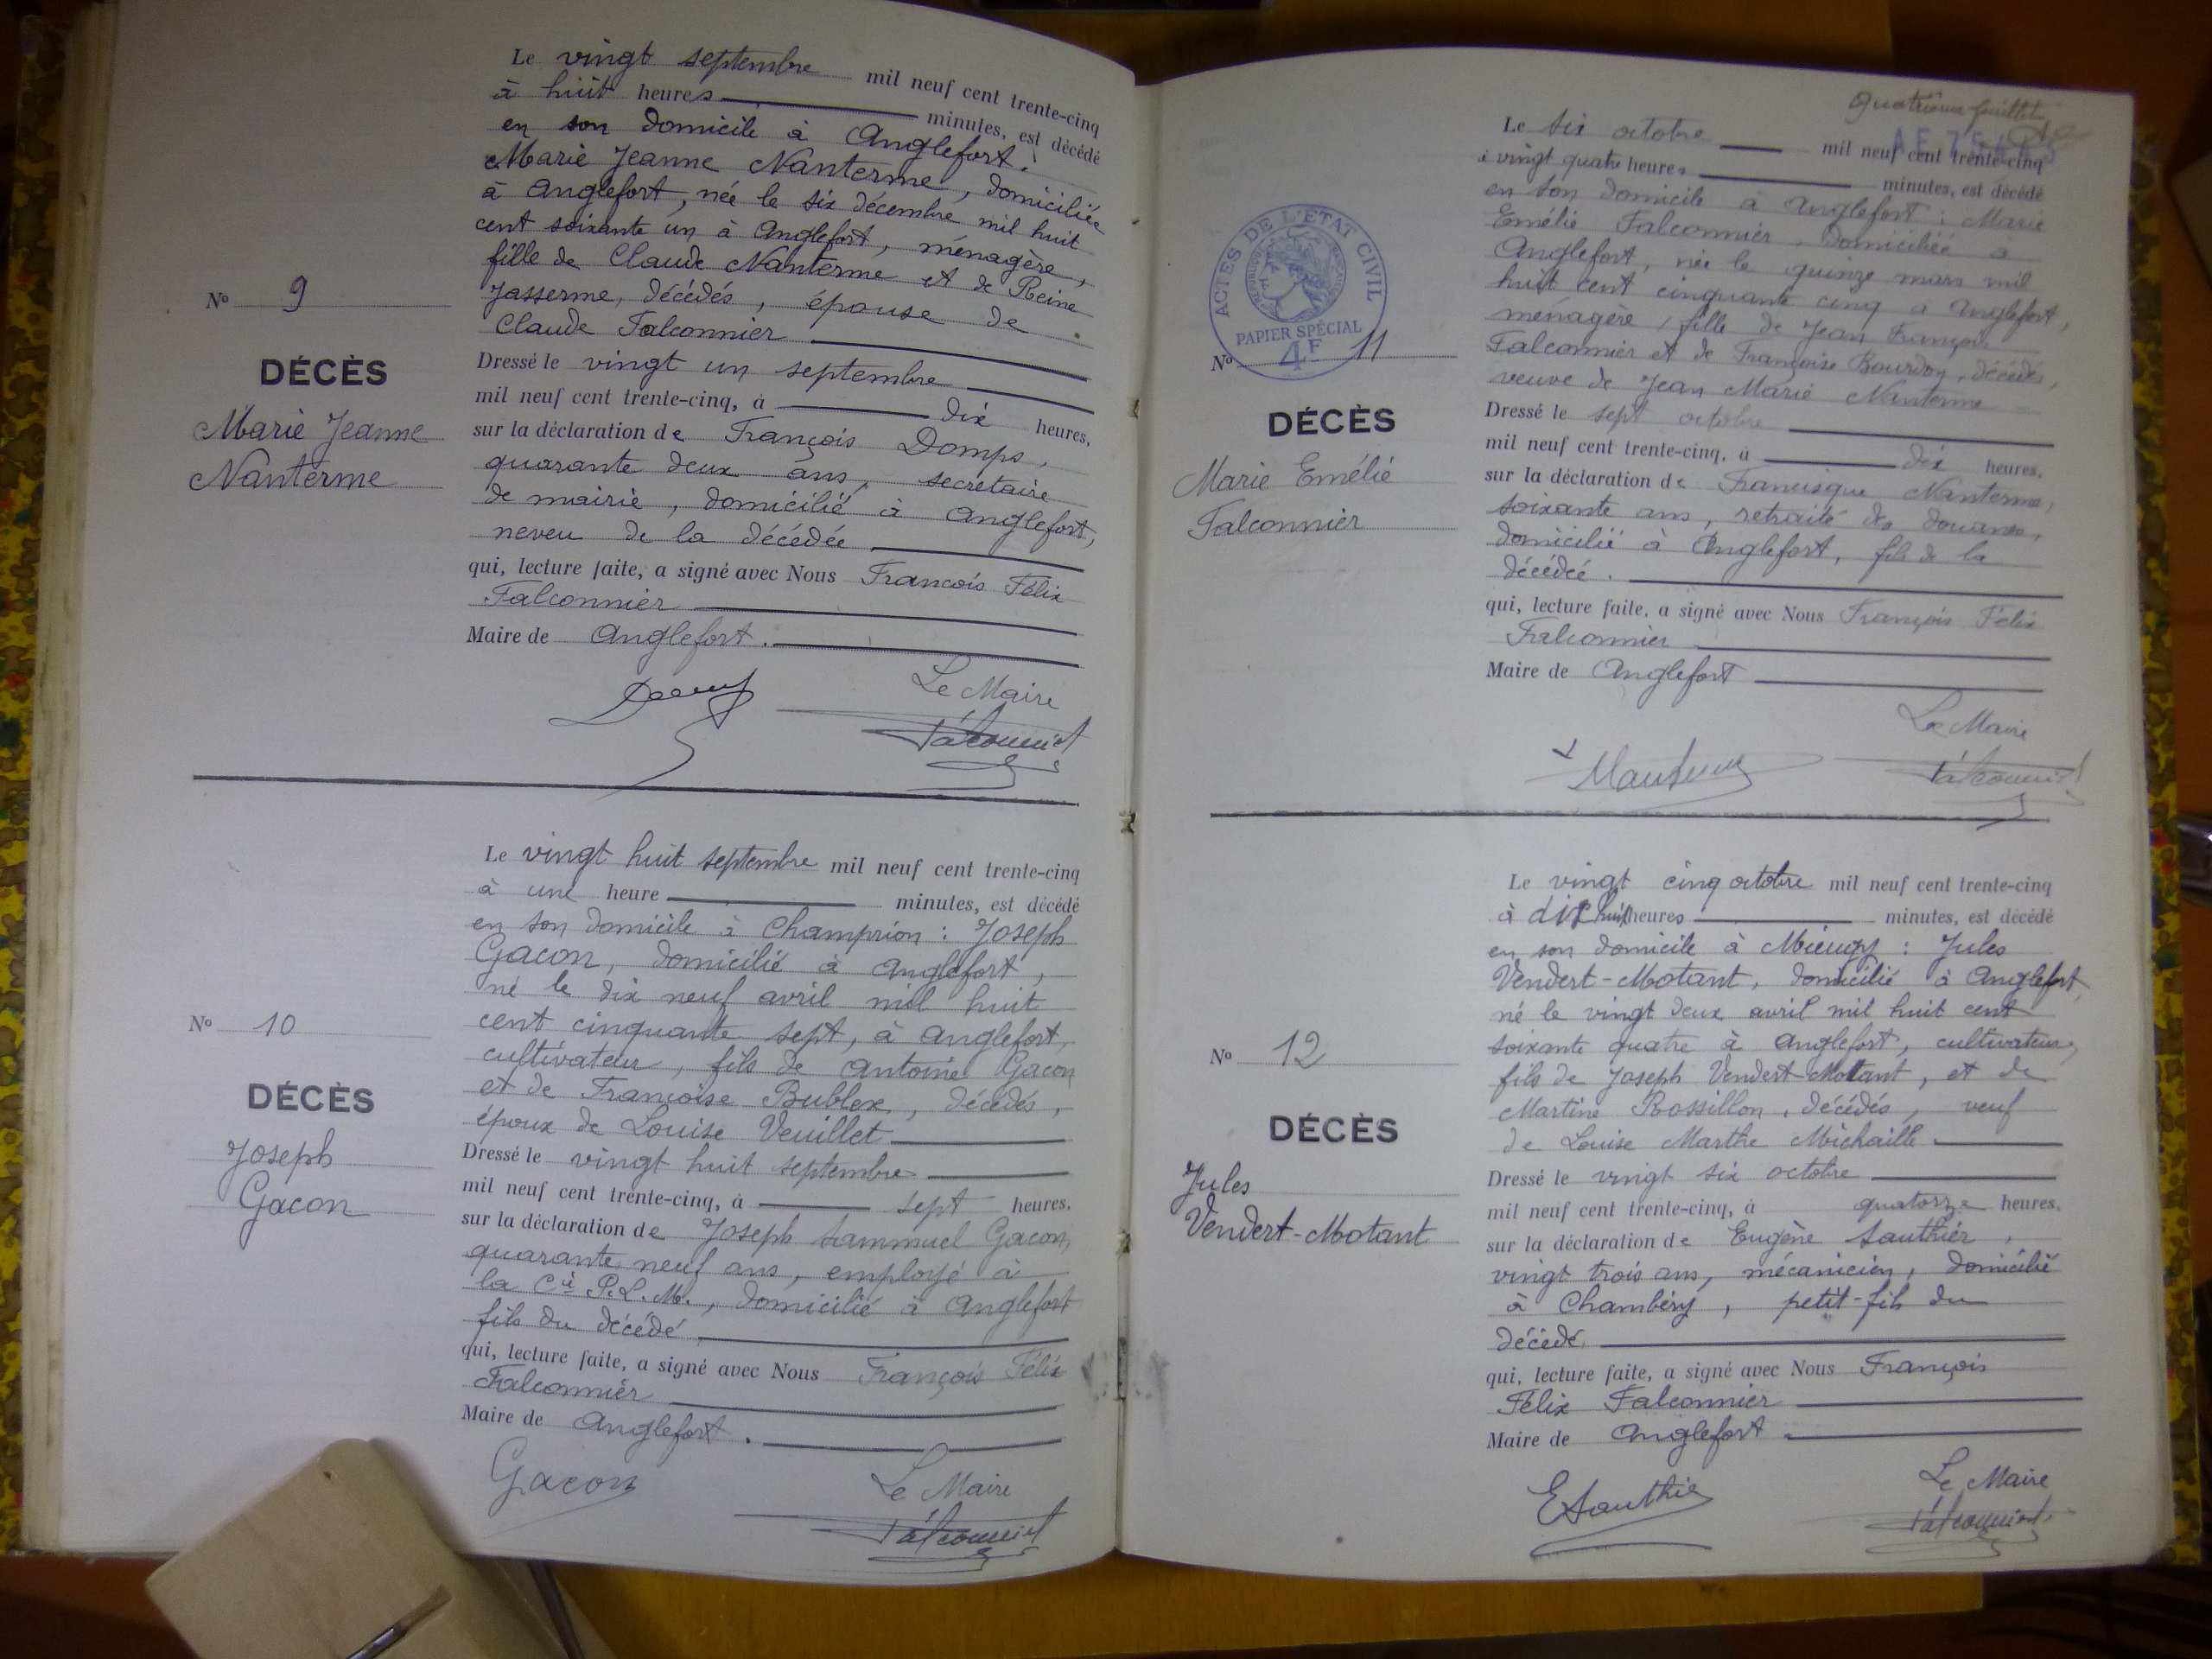 Le vingt septembre mil neuf cent trente-cinq
à huit heures minutes, est décédé
en son domicile à Anglefort :
Marie Jeanne Nanterme, domiciliée
à Anglefort, née le six décembre mil huit
cent soixante un à Anglefort, ménagère,
fille de Claude Nanterme et de Reine
Jasserme, décédés, épouse de
Claude Falconnier
Nº 9
DÉCÈS
Marie Jeanne
Nanterme
Dressé le vingt un septembre
mil neuf cent trente-cinq, à dix heures,
sur la déclaration de François Domps,
quarante deux ans, secrétaire
de mairie, domicilié à Anglefort,
neveu de la décédée
qui, lecture faite, a signé avec Nous François Félix
Falconnier
Maire de Anglefort.
Le Maire
Falconnier
Le vingt huit septembre mil neuf cent trente-cinq
à une heure minutes, est décédé
en son domicile à Champrion : Joseph
Gacon, domicilié à Anglefort,
né le dix neuf avril mil huit
cent cinquante sept, à Anglefort,
cultivateur, fils de Antoine Gacon
et de Françoise Bublex, décédés,
époux de Louise Veuillet
Nº 10
DÉCÈS
Joseph
Gacon
Dressé le vingt huit septembre
mil neuf cent trente-cinq, à sept heures.
sur la déclaration de Joseph Sammuel Gacon,
quarante neuf ans, employé à
la Cie P.L.M., domicilié à Anglefort
fils du décédé
qui, lecture faite, a signé avec Nous François Félix
Falconnier
Maire de Anglefort.
Gacon Le Maire
Falconnier
Quatrième feuillet
Le six octobre mil neuf cent trente-cinq
à vingt quatre heures minutes, est décédé
en son domicile à Anglefort : Marie
Emélie Falconnier, domiciliée à
Anglefort, née le quinze mars mil
huit cent cinquante cinq à Anglefort,
ménagère, fille de Jean François
Falconnier et de Françoise Bourdon, décédés,
veuve de Jean Marie Nanterme
ACTES DE L'ETAT CIVIL
PAPIER SPÉCIAL
4F
Nº 11
DÉCÈS
Marie Emélie
Falconnier
Dressé le sept octobre
mil neuf cent trente-cinq, à dix heures.
sur la déclaration de Francisque Nanterme,
soixante ans, retraité des douanes,
domicilié à Anglefort, fils de la
décédée.
qui, lecture faite, a signé avec Nous François Félix
Falconnier
Maire de Anglefort
Le Maire
Nanterme Falconnier
Le vingt cinq octobre mil neuf cent trente-cinq
à dix huit heures minutes, est décédé
en son domicile à Mieugy : Jules
Vendert-Motant, domicilié à Anglefort,
né le vingt deux avril mil huit cent
soixante quatre à Anglefort, cultivateur,
fils de Joseph Vendert-Motant, et de
Martine Rossillon, décédés, veuf
de Louise Marthe Michaille
Nº 12
DÉCÈS
Jules
Vendert-Motant
Dressé le vingt six octobre
mil neuf cent trente-cinq, à quatorze heures.
sur la déclaration de Eugène Sauthier,
vingt trois ans, mécanicien, domicilié
à Chambéry, petit-fils du
décédé.
qui, lecture faite, a signé avec Nous François
Félix Falconnier
Maire de Anglefort
Le Maire
ESauthier Falconnier